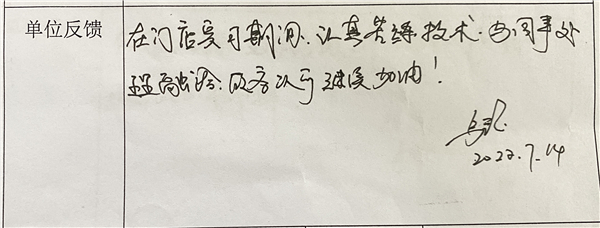 单位反馈
在门店实习期间.认真苦练技术.与同事处
理融洽.服务次于进度加油!
2022.7.14